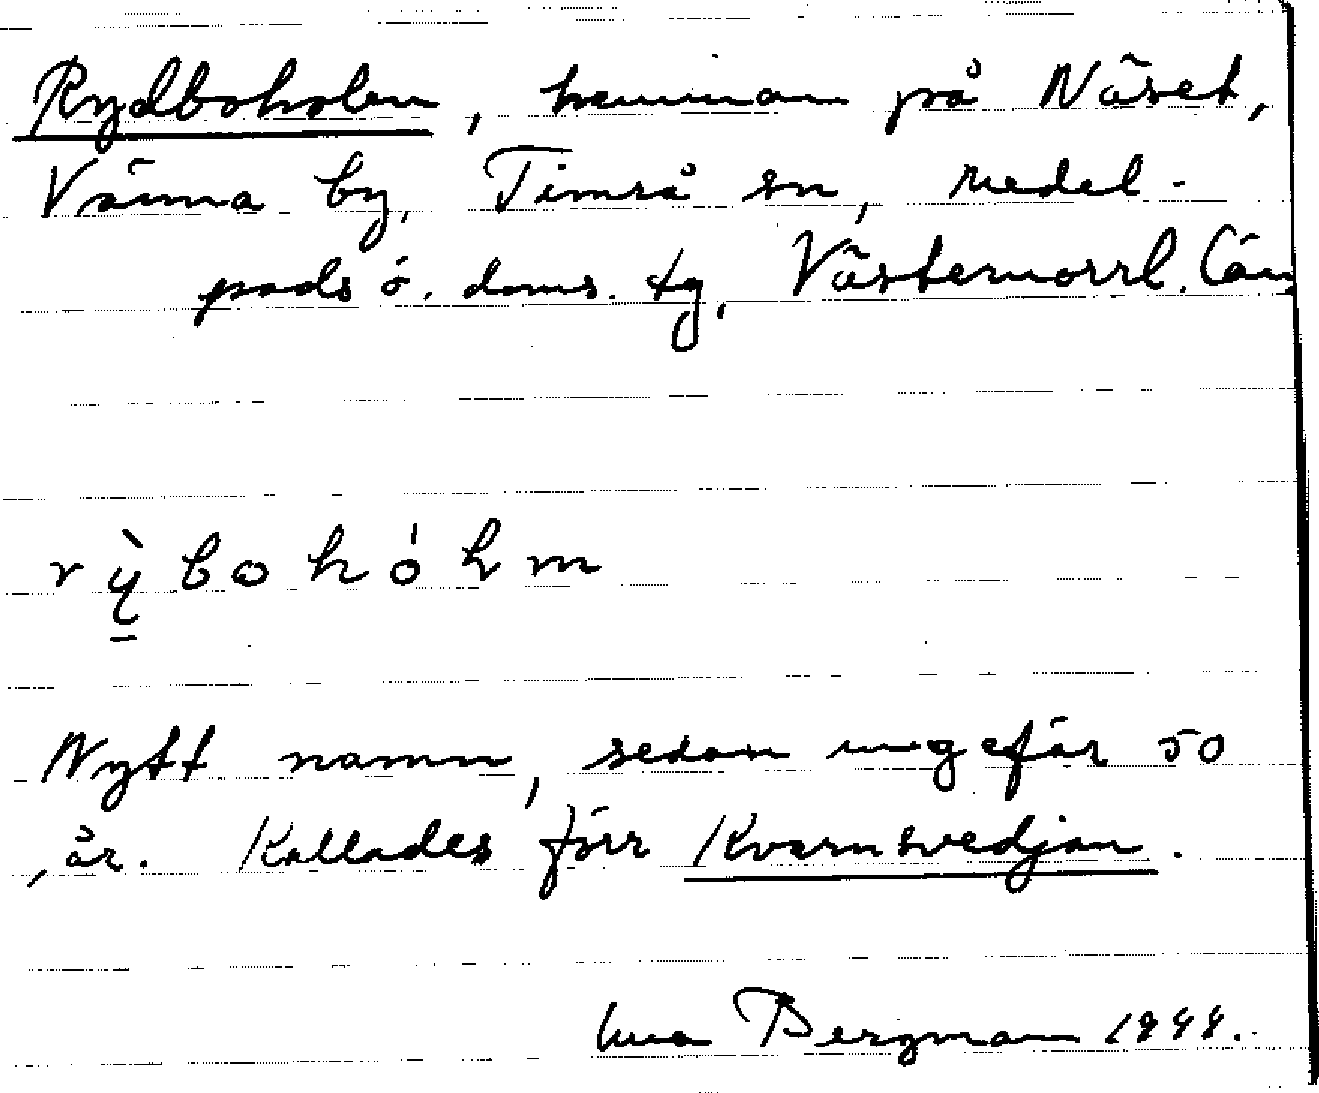 Rydboholm, hemman på Näset,
Vänna by, Timrå sn, Medel-
pads ö. doms. tg, Västernorrl. län
rỳbohólm
Nytt namn, sedan ungefär 50
år. Kallades förr Kvarnsvedjan.
Bergman